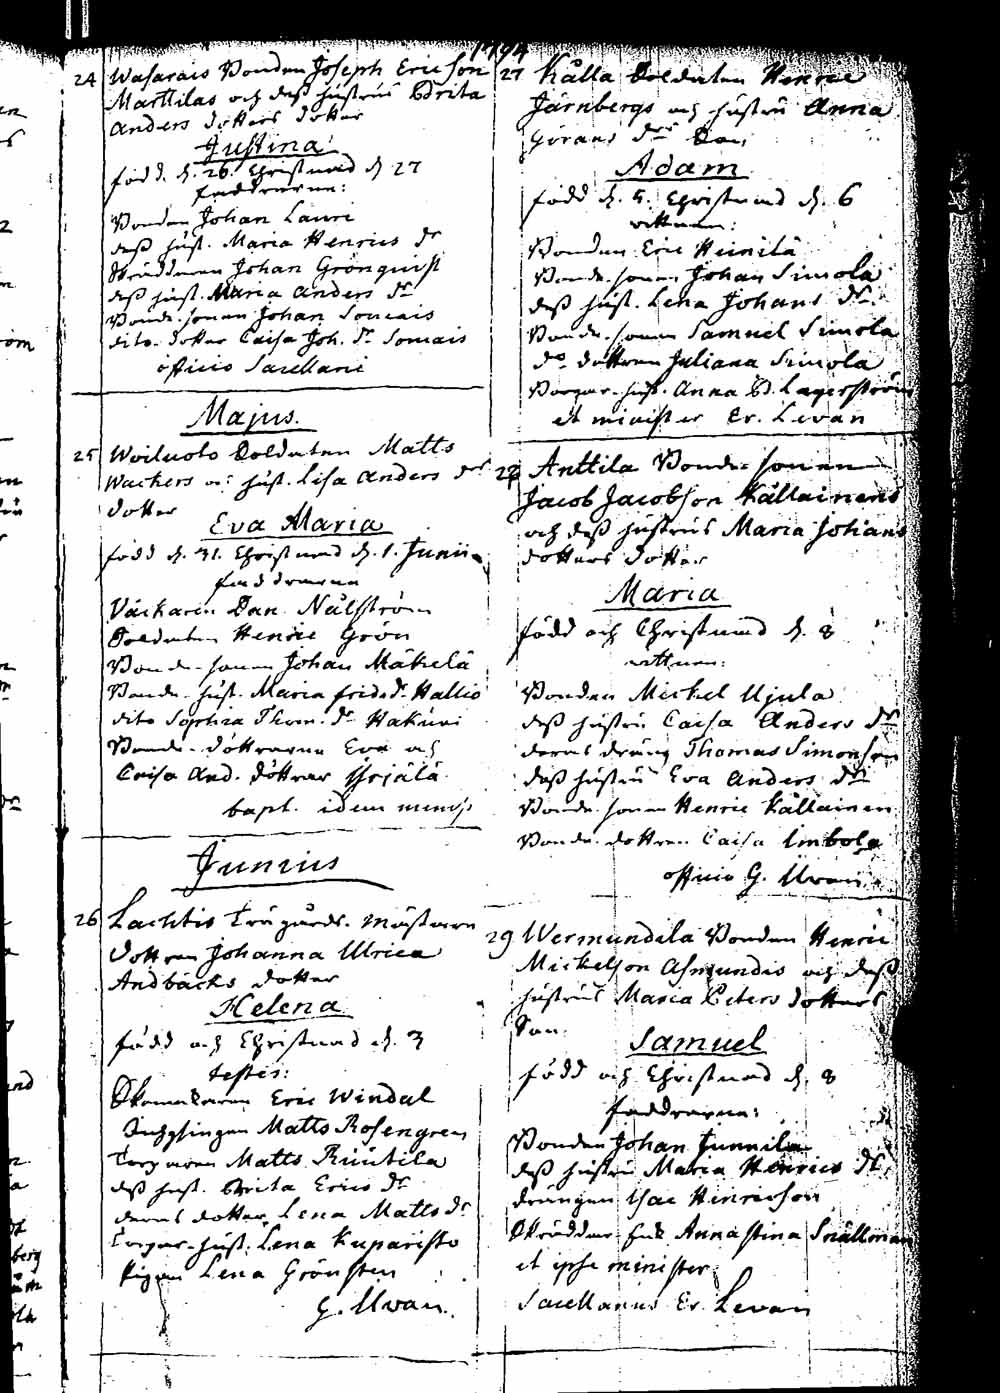 1794
24 Wasarais Bonden Joseph Ericson
Marttilas och dess hustrus Brita
Anders dotters dotter
Justina
född d. 26. Christnad d 27
faddrarne:
Bonden Johan Lauri
dess hust. Maria Henrics dr
Skräddaren Johan Grönquist
dess hust. Maria Anders dr
Bonde-sonen Johan Soucais
dito-dotter Caisa Joh. dr Soucais
officio Sacellani
Majus.
25 Woiluoto Soldaten Matts
Wackers oc hust. Lisa Anders drs
dotter
Eva Maria
född d. 31. Christnad d. 1. Junii
faddrarne
Väckaren Dan Nälström
Soldaten Henric Grön
Bonde-sonen Johan Mäkelä
Bonde-hust. Maria frids dr Hallio
dito Sophia Thom. dr Hakuni
Bonde-döttrarne Eva och
Caisa And. döttrar
bapt. idem
Junius
26 Lachtis Trägårds-mästaren
dottren Johanna Ulrica
Andbäcks dotter
Helena
född och Christnad d. 3
testes:
Skomakaren Eric Windal
Matts Rosengren
Torparen Matts Riiutila
dess hust. Brita Erics dr
deras dotter Lena Matts dr
Torpar-hust. Lena Kuparisto
Pigan Lena Grönsten
G. Alvan.
27 Källa Soldaten Henric
Järnbergs och hustru Anna
Görans drs Son
Adam
född d. 5. Christnad d. 6
vittnen:
Bonden Eric Heinilä
Bonde-sonen Johan Simola
dess hust. Lena Johans dr
Bonde-sonen Samuel Simola
do dottren Juliana Simola
Borgar-hust. Anna B. Lagerström
et minister Er. Levan
28 Anttila Bonde-sonen
Jacob Jacobson Källainens
och dess hustrus Maria Johans
dotters dotter
Maria
född och Christnad d. 8
vittnen:
Bonden Michel Ujula
dess hustru Caisa Anders dr
deras dräng Thomas Simonson
dess hustru Eva Anders dr
Bonde-sonen Henric Källainen
Bonde-dottren Caisa Imbola
officio G. Alvan.
29 Wermundila Bonden Henric
Mickelson Asmundis och dess
hustrus Maria Peters dotters
Son
Samuel
född och Christnad d. 8
faddrarne:
Bonden Johan Junnila
dess hustru Maria Henrics dr
drängen Isac Henricson
Skräddar Annastina Snällman
et ipse minister
Sacellanus Er. Levan